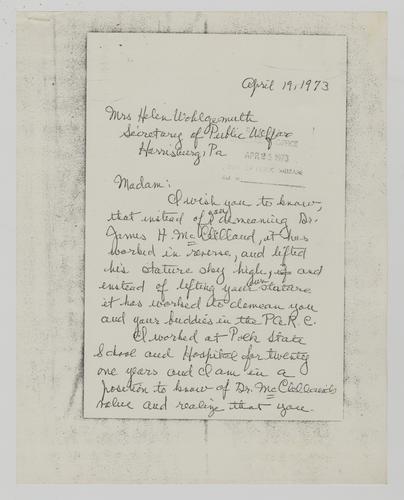 April 19, 1973
Mrs Helen Wohlgemuth
Secretary of Public Welfare
Harrisburg, Pa
OFFICE
APR 25 1973
Madam:
I wish you to know,
that instead of your demeaning Dr.
James H. McClelland, it has
worked in reverse, and lifted
his stature sky high, and
instead of lifting your own stature
it has worked to demean you
and your buddies in the P.A.R.C.
I worked at Polk State
School and Hospital for twenty
one years and I am in a
position to know of Dr. McClelland's
value and realize that you.